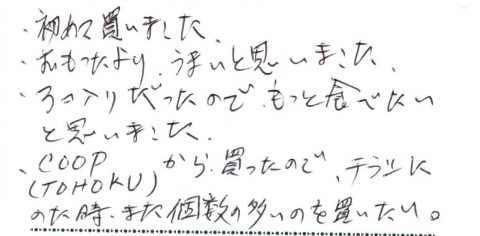 ・初めて買いました、
・おもったより、うまいと思いました、
・3コ入りだったので、もっと食べたい
と思いました、
、COOP から、買ったので、チラシに
(TOHOKU)
のた時、また個数の多いのを買いたい。